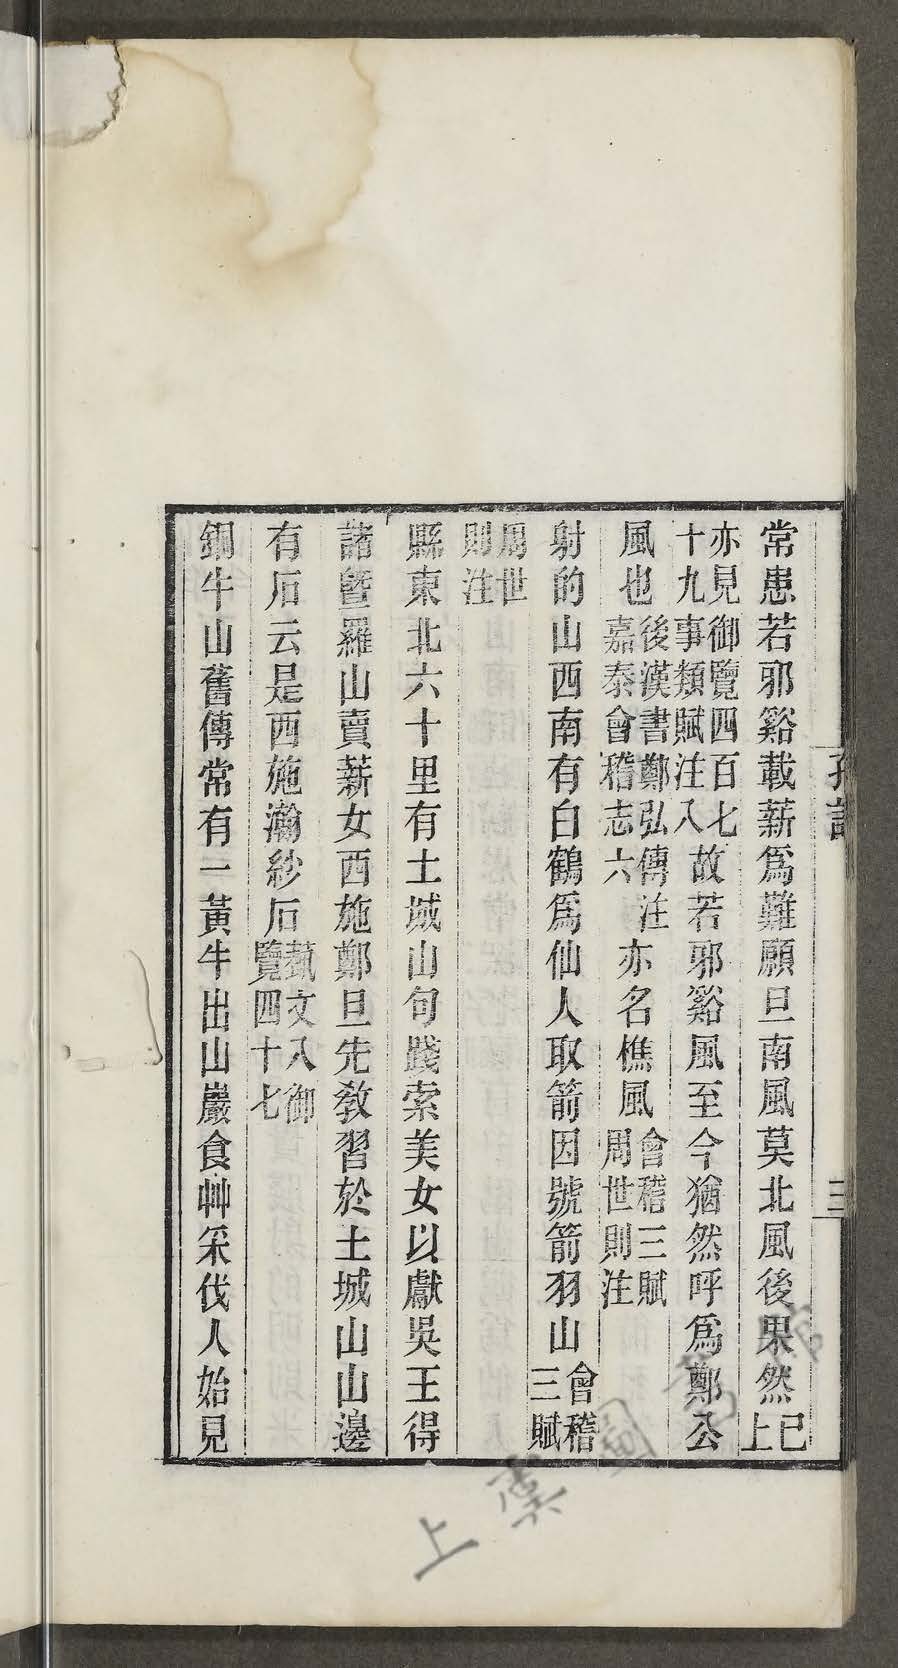 常患若邪谿載薪爲難願旦南風莫北風後果然已上
亦見御覽四百七十九事類賦注八故若邪谿風至今猶然呼爲鄭公
風也後漢書鄭弘傳注嘉泰會稽志六亦名樵風會稽三賦周世則注
射的山西南有白鶴爲仙人取箭因號箭羽山會稽三賦
周世則注
縣東北六十里有土城山句踐索美女以獻吳王得
諸曁羅山賣薪女西施鄭旦先敎習於土城山山邊
有石云是西施瀚紗石蓺文八御覽四十七
銅牛山舊傳常有一黃牛出山巖食艸采伐人始見
三
上虞圖書館